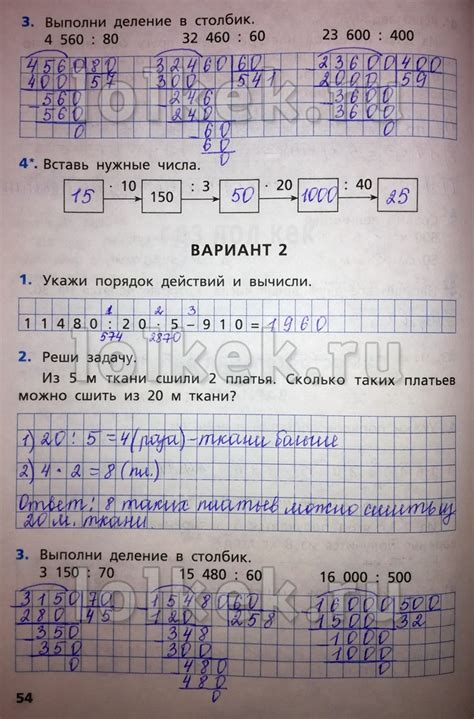 3. Выполни деление в столбик.
4 560 : 80 32 460 : 60 23 600 : 400
4560 80 32460 60 23600 400
400 57 300 541 2000 59
560 246 3600
560 240 3600
0 60 0
60
0
4*. Вставь нужные числа.
15 · 10 150 : 3 50 · 20 1000 : 40 25
ВАРИАНТ 2
1. Укажи порядок действий и вычисли.
1 2 3
11480 : 20 · 5 – 910 = 1960
574 2870
2. Реши задачу.
Из 5 м ткани сшили 2 платья. Сколько таких платьев
можно сшить из 20 м ткани?
1) 20 : 5 = 4 (раза) - ткани больше
2) 4 · 2 = 8 (пл.)
Ответ: 8 таких платьев можно сшить из
20 м. ткани
3. Выполни деление в столбик.
3 150 : 70 15 480 : 60 16 000 : 500
3150 70 15480 60 16000 500
280 45 120 258 1500 32
350 348 1000
350 300 1000
0 480 0
480
0
54
lolkek.ru
lolkek.ru
lolkek.ru